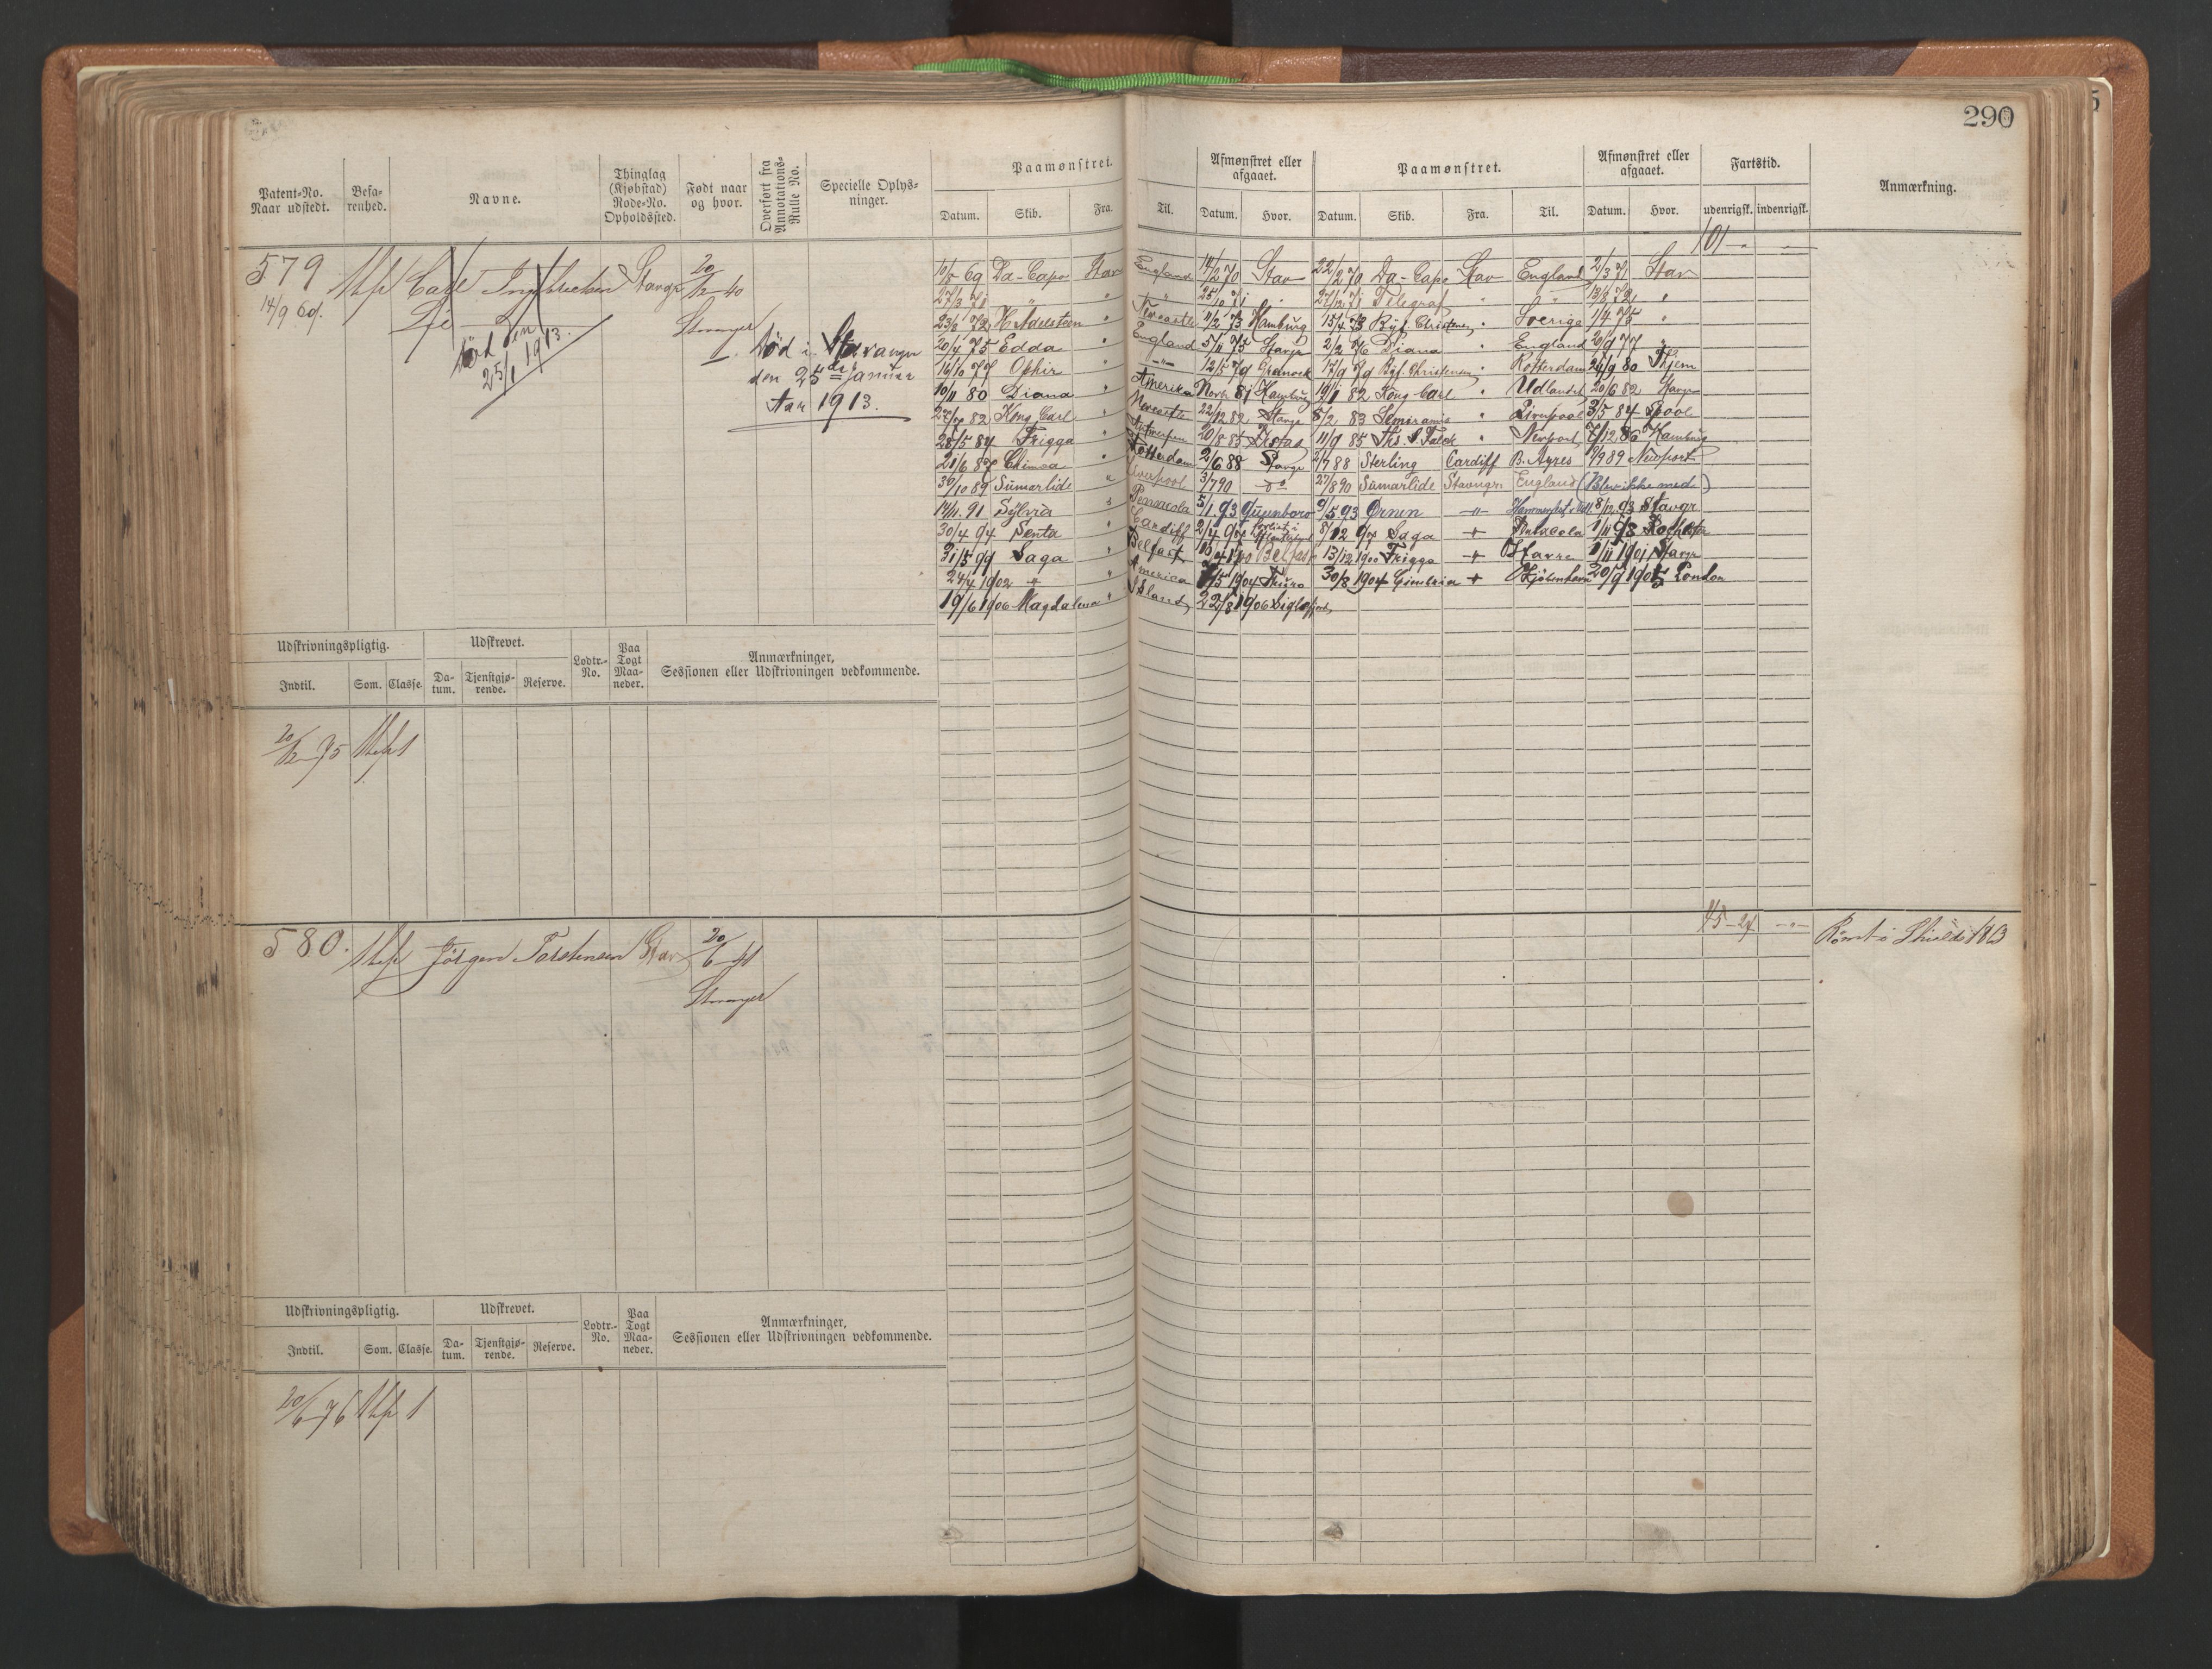 290
Patent-No. Naar udstedt.
Befarenhed.
Navne.
Thinglag (Kjøbstad) Rode-No. Opholdssted.
Født naar og hvor.
Overført fra Annotations-Rulle No.
Specielle Oplysninger.
Paamønstret.
Datum. Skib. Fra. Til.
Afmønstret eller afgaaet.
Datum. Hvor.
Paamønstret.
Datum. Skib. Fra. Til.
Afmønstret eller afgaaet.
Datum. Hvor.
Fartstid.
udenrigsk. indenrigsk.
Anmærkning.
101
579 Carl Ingebrethsen Stavgr 20/12 40
14/9 69.
Stavanger
Død den 25/1 1913.
Død i Stavanger
den 25de Januar
Aar 1913.
10/8 69 Da-Capo Stav England 14/2 70 Stav 22/2 70 Da-Capo Stav England 2/3 71 Stav
27/3 71 " " " 25/10 71 " 27/12 71 Telegraf " " 13/8 72 "
23/8 72 H Adelsteen " Newcastle 11/2 73 Hamburg 15/4 73 Byf. Christensen " Sverige 1/4 75 "
20/4 75 Edda " England 5/11 75 Stavgr 2/2 76 Diana " England 20/9 77 "
16/10 77 Ophir " " 12/5 79 Greenock 17/9 79 Byf Christensen " Rotterdam 24/9 80 Thjem
10/11 80 Diana " Amerika Novbr 81 Hamburg 19/1 82 Kong Carl " Udlandet 20/6 82 Stavgr
27/7 82 Kong Carl " Newcastle 22/12 82 Stavgr 8/2 83 Semiramis " Liverpool 3/5 84 Lpool
28/5 84 Frigga " Antwerpen 20/8 85 Ystad 11/9 85 Ths. S Falck " Newport 7/12 86 Hamburg
21/6 87 Chimoa " Rotterdam 2/6 88 Stavgr 2/7 88 Sterling Cardiff B. Ayres 9/9 89 Newport
30/10 89 Sumarlide " Liverpool 3/7 90 do 27/8 90 Sumarlide Stavngr England (Blev ikke med)
14/11 91 Sylvia " Pensacola 5/1 93 Queenboro 9/5 93 Ørnen " Hammerfest 8/12 93 Stavgr
30/4 94 Senta " Cardiff 2/4 97 forlist i 8/12 97 Saga + Pensacola 1/11 98 Rochester
31/5 99 Saga " Belfast 10/4 1900 Belfast 13/12 1900 Frigga + Havre 1/11 1901 Stavgr
24/4 1902 + " America 7/5 1904 Truro 30/8 1904 Cimbria + Kjøbenhavn 20/9 1905 London
19/6 1906 Magdalena " Island 22/8 1906 Siglefjord
Udskrivningspligtig.
Indtil. Som. Classe.
Udskrevet.
Datum. Tjenstgjørende. Reserve.
Lodtr.-No.
Paa Togt Maaneder.
Anmærkninger, Sessionen eller Udskrivningen vedkommende.
20/12 75 1
580. Jörgen Torstensen Stav 20/6 41
Stavanger
Rømt i Shields 1863
Udskrivningspligtig.
Indtil. Som. Classe.
Udskrevet.
Datum. Tjenstgjørende. Reserve.
Lodtr.-No.
Paa Togt Maaneder.
Anmærkninger, Sessionen eller Udskrivningen vedkommende.
20/6 76 1